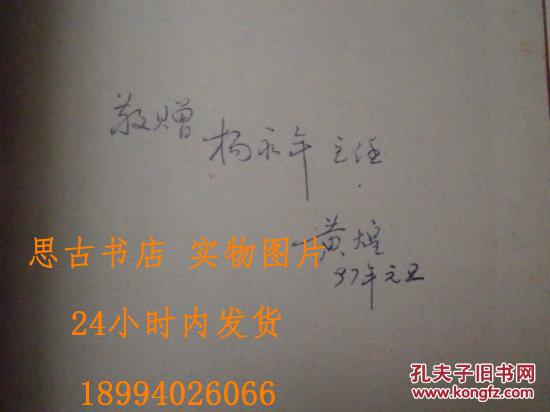 敬赠
杨永年 主任
黄煌
97年元旦
思古书店 实物图片
24小时内发货
18994026066
孔夫子旧书网
kongfz.com